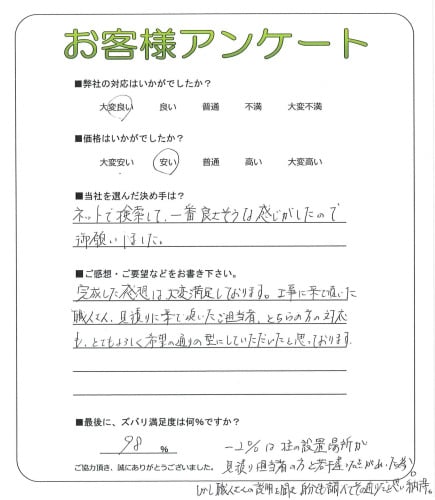 お客様アンケート
■弊社の対応はいかがでしたか？
大変良い 良い 普通 不満 大変不満
■価格はいかがでしたか？
大変安い 安い 普通 高い 大変高い
■当社を選んだ決め手は？
ネットで検索して、一番良さそうな感じがしたので
御願いしました。
■ご感想・ご要望などをお書き下さい。
完成した感想は大変満足しております。工事に来て頂いた
職人さん、見積りに来て頂いたご担当者、どちらの方の対応
も、とてもよろしく希望の通りの型にしていただいたと思っております。
■最後に、ズバリ満足度は何％ですか？
98 ％
－2%は 柱の設置場所が
ご協力頂き、誠にありがとうございました。
見積り担当者の方と若干違いがあった為。
しかし職人さんの説明を聞き 自分も調べてその通りだと思い納得。